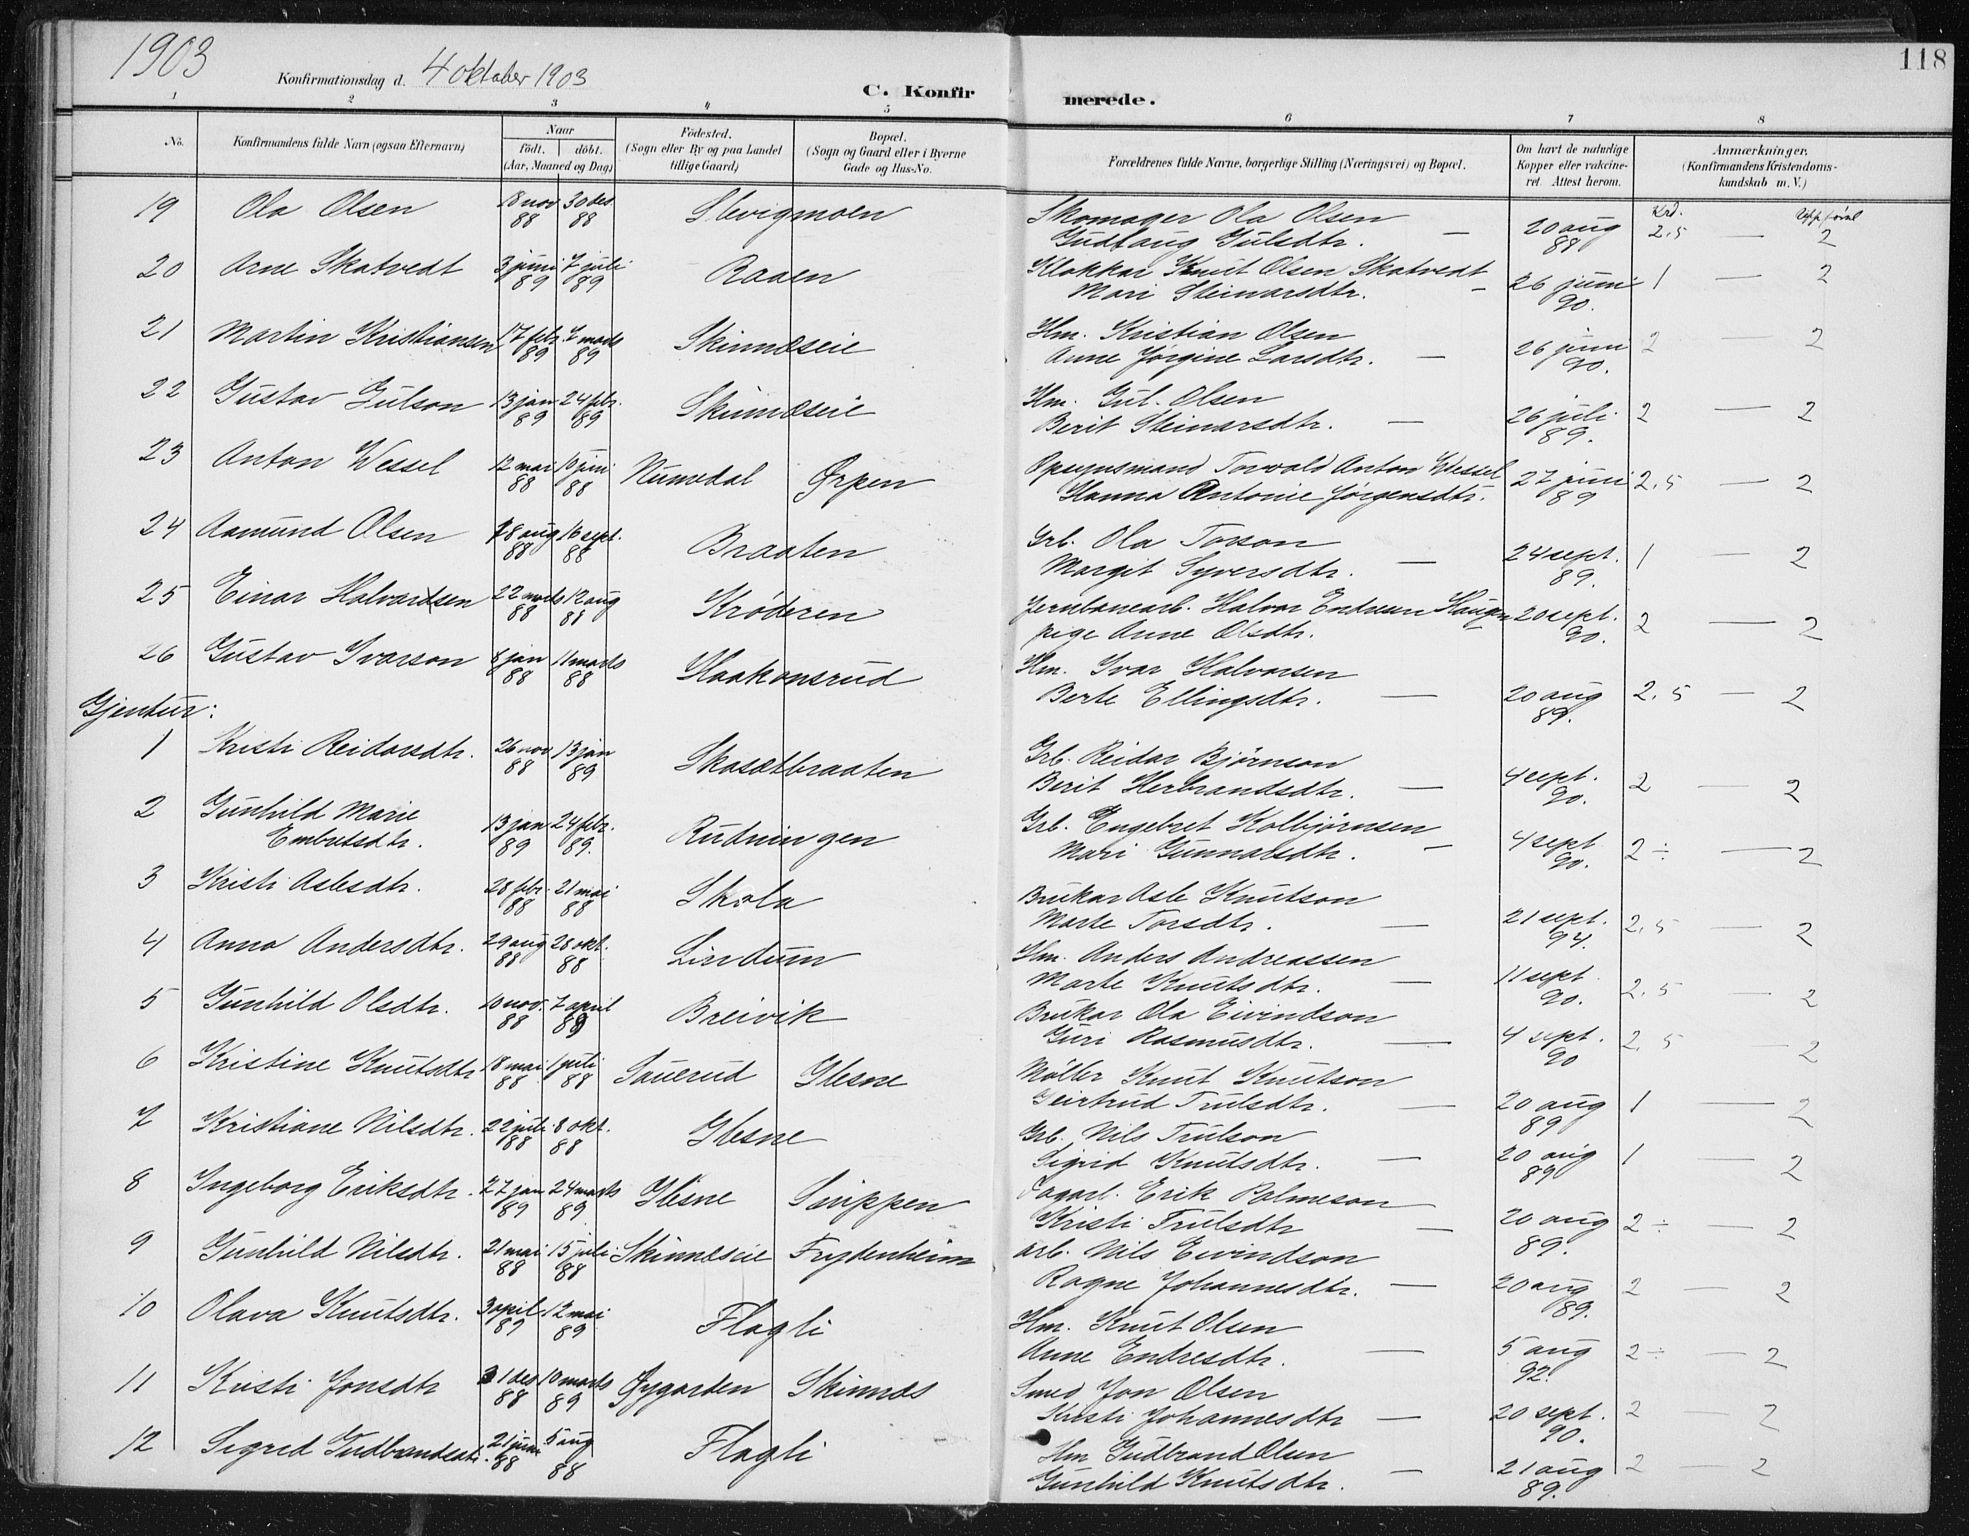 1903
118
Konfirmationsdag d. 4 oktober 1903
C. Konfirmerede.
1 2 3 4 5 6 7 8
No. Konfirmandens fulde Navn (ogsaa Efternavn) Naar født. døbt. (Aar, Maaned og Dag) Fødested. (Sogn eller By og paa Landet tillige Gaard) Bopæl. (Sogn og Gaard eller i Byerne Gade og Hus-No. Forældrenes fulde Navne, borgerlige Stilling (Næringsvei) og Bopæl. Om havt de naturlige Kopper eller vakcineret. Attest herom. Anmærkninger. (Konfirmandens Kristendomskundskab m. V.)
Krd. Uppførsl
19 Ola Olsen 18 nov 88 30 des 88 Slevigmoen Skomager Ola Olsen Gudlaug Gulsdtr. — 20 aug 88 2,5 — 2
20 Arne Skatvedt 3 juni 89 7 juli 89 Raaen Klokkar Knut Olsen Skatvedt Mari Steinarsdtr. - 26 juni 90. 1 — 2
21 Martin Kristiansen 17 febr. 89 7 marts 89 Skinnæseie Hm. Kristian Olsen Anne Jørgine Larsdtr. — 26 juni 90. 2 — 2
22 Gustav Gulson 13 jan 89 24 febr. 89 Skinnæseie Hm. Gul. Olsen Berit Steinarsdtr. — 26 juli 89. 2 — 2
23 Anton Wessel 12 mai 88 10 juni 88 Numedal Ørpen Opsynsmand Torvald Anton Wessel Hanna Antonie Jørgensdtr. 27 juni 89 2,5 — 2
24 Aamund Olsen 28 aug 88 16 sept. 88 Braaten Grb. Ola Torson Margit Syversdtr. — 24 sept. 89. 1 — 2
25 Einar Halvardsen 22 marts 88 12 aug 88 Krøderen Jernbanearb. Halvar Endresen Haugen pige Anne Olsdtr. - 20 sept. 90. 2 — 2
26 Gustav Ivarson 8 jan 88 11 marts 88 Haakonsrud Hm. Ivar Halvorsen Berte Ellingsdtr. — 20 aug 89. 2,5 — 2
Gjentur:
1 Kristi Reidarsdtr. 26 nov 88 13 jan 89 Skasætbraaten Grb. Reidar Bjørnson Berit Herbrandsdtr. — 4 sept. 90. 2 — 2
2 Gunhild Marie Embretsdtr. 13 jan 89 24 febr. 89. Rudningen Grb. Engebret Kolbjørnsen Mari Gunnalsdtr. - 4 sept 90. 2 ÷ — 2
3 Kristi Aslesdtr. 28 febr. 88 21 mai 88 Skola Brukar Asle Knutson Marte Torsdtr. — 21 sept. 94. 2,5 — 2
4 Anna Andersdtr. 29 aug 88 28 okt. 88 Lindum Hm. Anders Andreassen Marte Knutsdtr. — 11 sept. 90. 2,5 — 2
5 Gunhild Olsdtr. 10 nov. 88 7 april 89 Breivik Brukar Ola Eivindson Guri Rasmusdtr. — 4 sept. 90 2,5 — 2
6 Kristine Knutsdtr 18 mai 88 1 juli 88 Sauerud Glesne Møller Knut Knutson Geirtrud Trulsdtr. — 20 aug 89 1 — 2
7 Kristiane Nilsdtr. 22 juli 88 8 okt. 88 Glesne Grb. Nils Trulson Sigrid Knutsdtr. — 20 aug 89 1 — 2
8 Ingeborg Eriksdtr. 27 jan 89 24 marts 89 Glesne Svippen Erik Palmeson Kristi Trulsdtr — 20 aug 89. 2 ÷ — 2
9 Gunhild Nilsdtr. 21 mai 88 15 juli 88 Skinnæseie Frydenheim arb. Nils Eivindson Ragne Johannesdtr. — 20 aug 89. 2 — 2
10 Olava Knutsdtr. 3 april 89 12 mai 89 Flagli Hm. Knut Olsen Anne Endresdtr. — 5 aug 92. 2 ÷ — 2
11 Kristi Jonsdtr 31 des 88 10 marts 89 Øygarden Skinnes Smed Jon Olsen Kristi Johannesdtr — 20 sept. 90. 2 — 2
12 Sigrid Gudbrandsdtr. 21 juni 88 5 aug 88 Flagli Hm Gudbrand Olsen Gunhild Knutsdtr. — 21 aug 89. 2 — 2